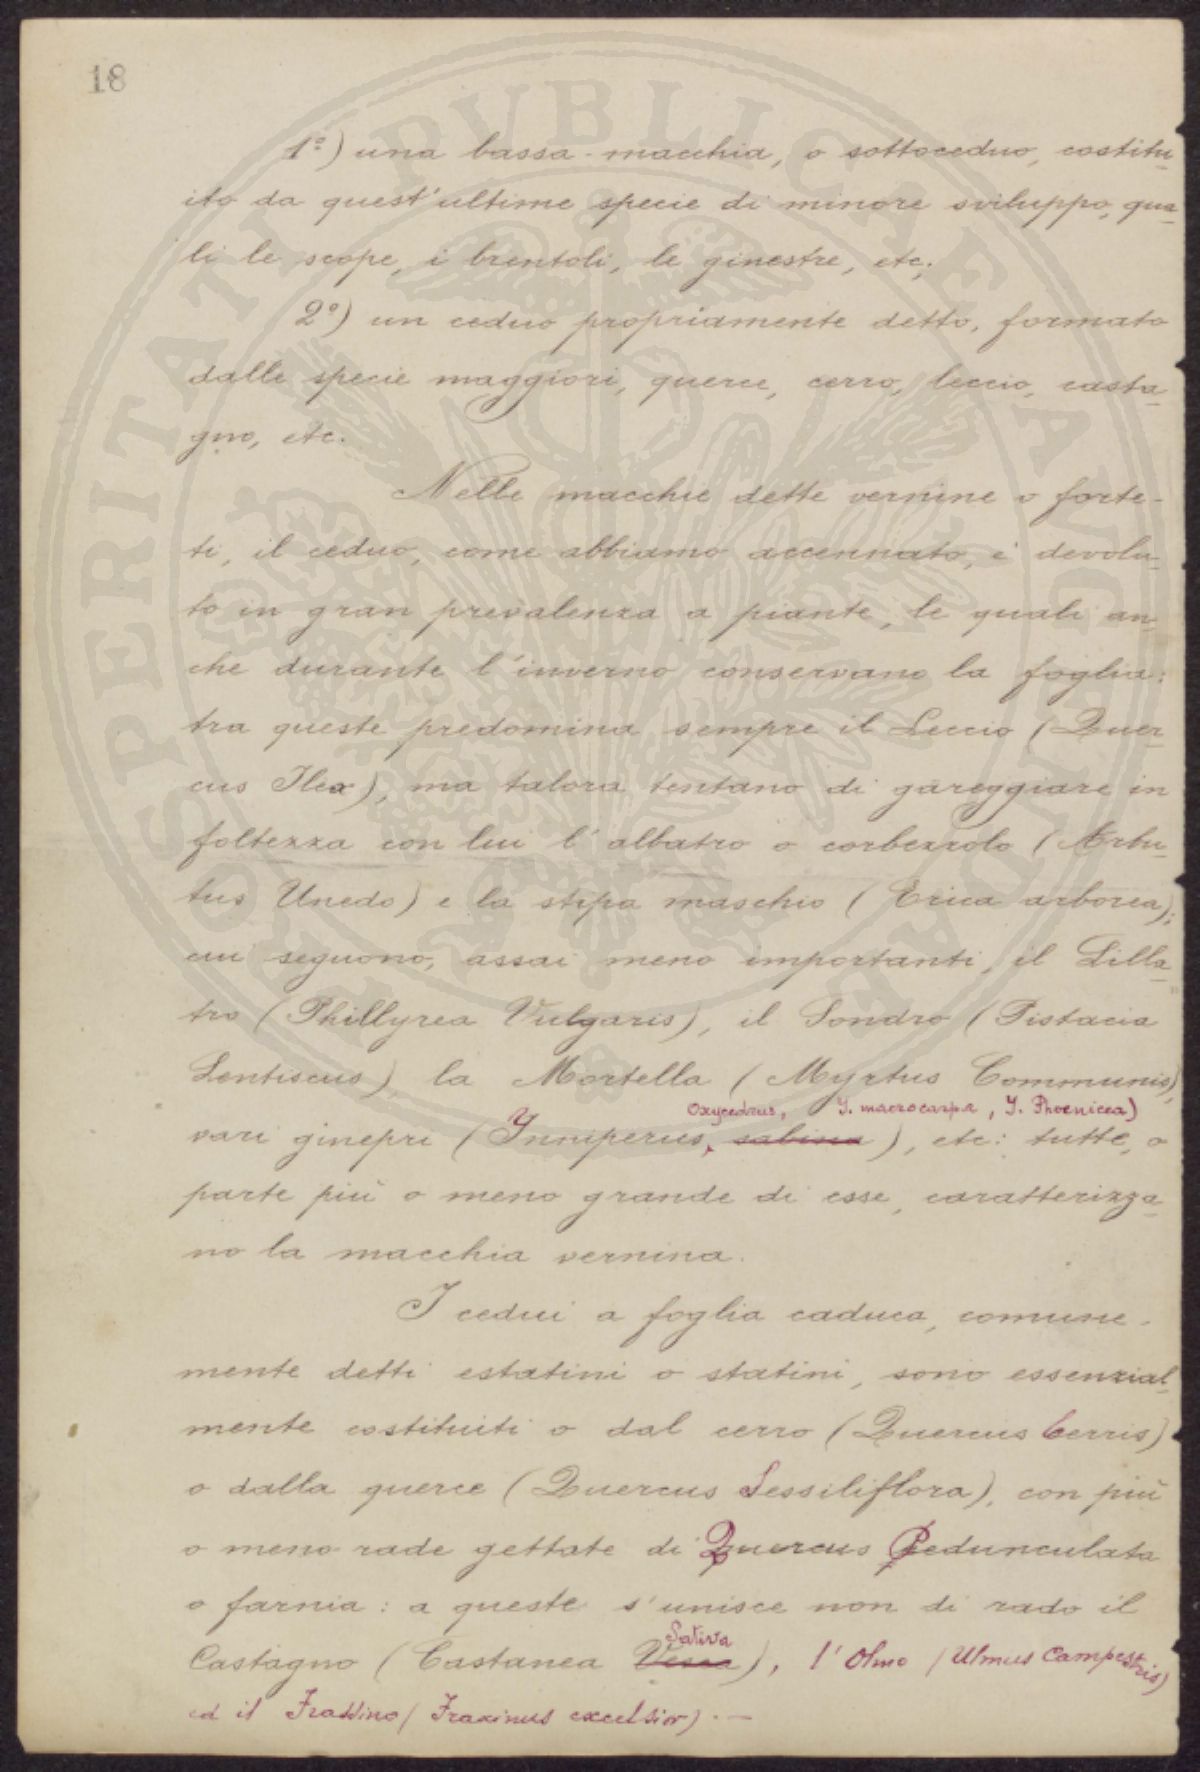 18
1º) una bassa-macchia, o sottoceduo, costitu-
ito da quest'ultime specie di minore sviluppo, qua-
li le scope, i brentoli, le ginestre, etc;
2º) un ceduo propriamente detto, formato
dalle specie maggiori, querce, cerro, leccio, casta-
gno, etc.
Nelle macchie dette vernine o forte-
ti, il ceduo, come abbiamo accennato, è devolu-
to in gran prevalenza a piante, le quali an-
che durante l'inverno conservano la foglia:
tra queste predomina sempre il Leccio (Quer-
cus Ilex), ma talora tentano di gareggiare in
foltezza con lui l'albatro o corbezzolo (Arbu-
tus Unedo) e la stipa maschio (Erica arborea);
cui seguono, assai meno importanti, il Lilla-
tro (Phillyrea Vulgaris), il Sondro (Pistacia
Lentiscus), la Mortella (Myrtus Communis),
Oxycedrus, J. macrocarpa, J. Phoenicea)
vari ginepri (Juniperus, sabina), etc: tutte, o
parte più o meno grande di esse, caratterizza-
no la macchia vernina.
I cedui a foglia caduca, comune-
mente detti estatini o statini, sono essenzial-
mente costituiti o dal cerro (Quercus Cerris)
o dalla querce (Quercus Sessiliflora), con più
o meno rade gettate di Quercus Pedunculata
o farnia: a queste s'unisce non di rado il
Sativa
Castagno (Castanea Vesca), l'Olmo (Ulmus Campestris)
ed il Frassino (Fraxinus excelsior).—
PROSPERITATI PVBLICAE AVGENDAE